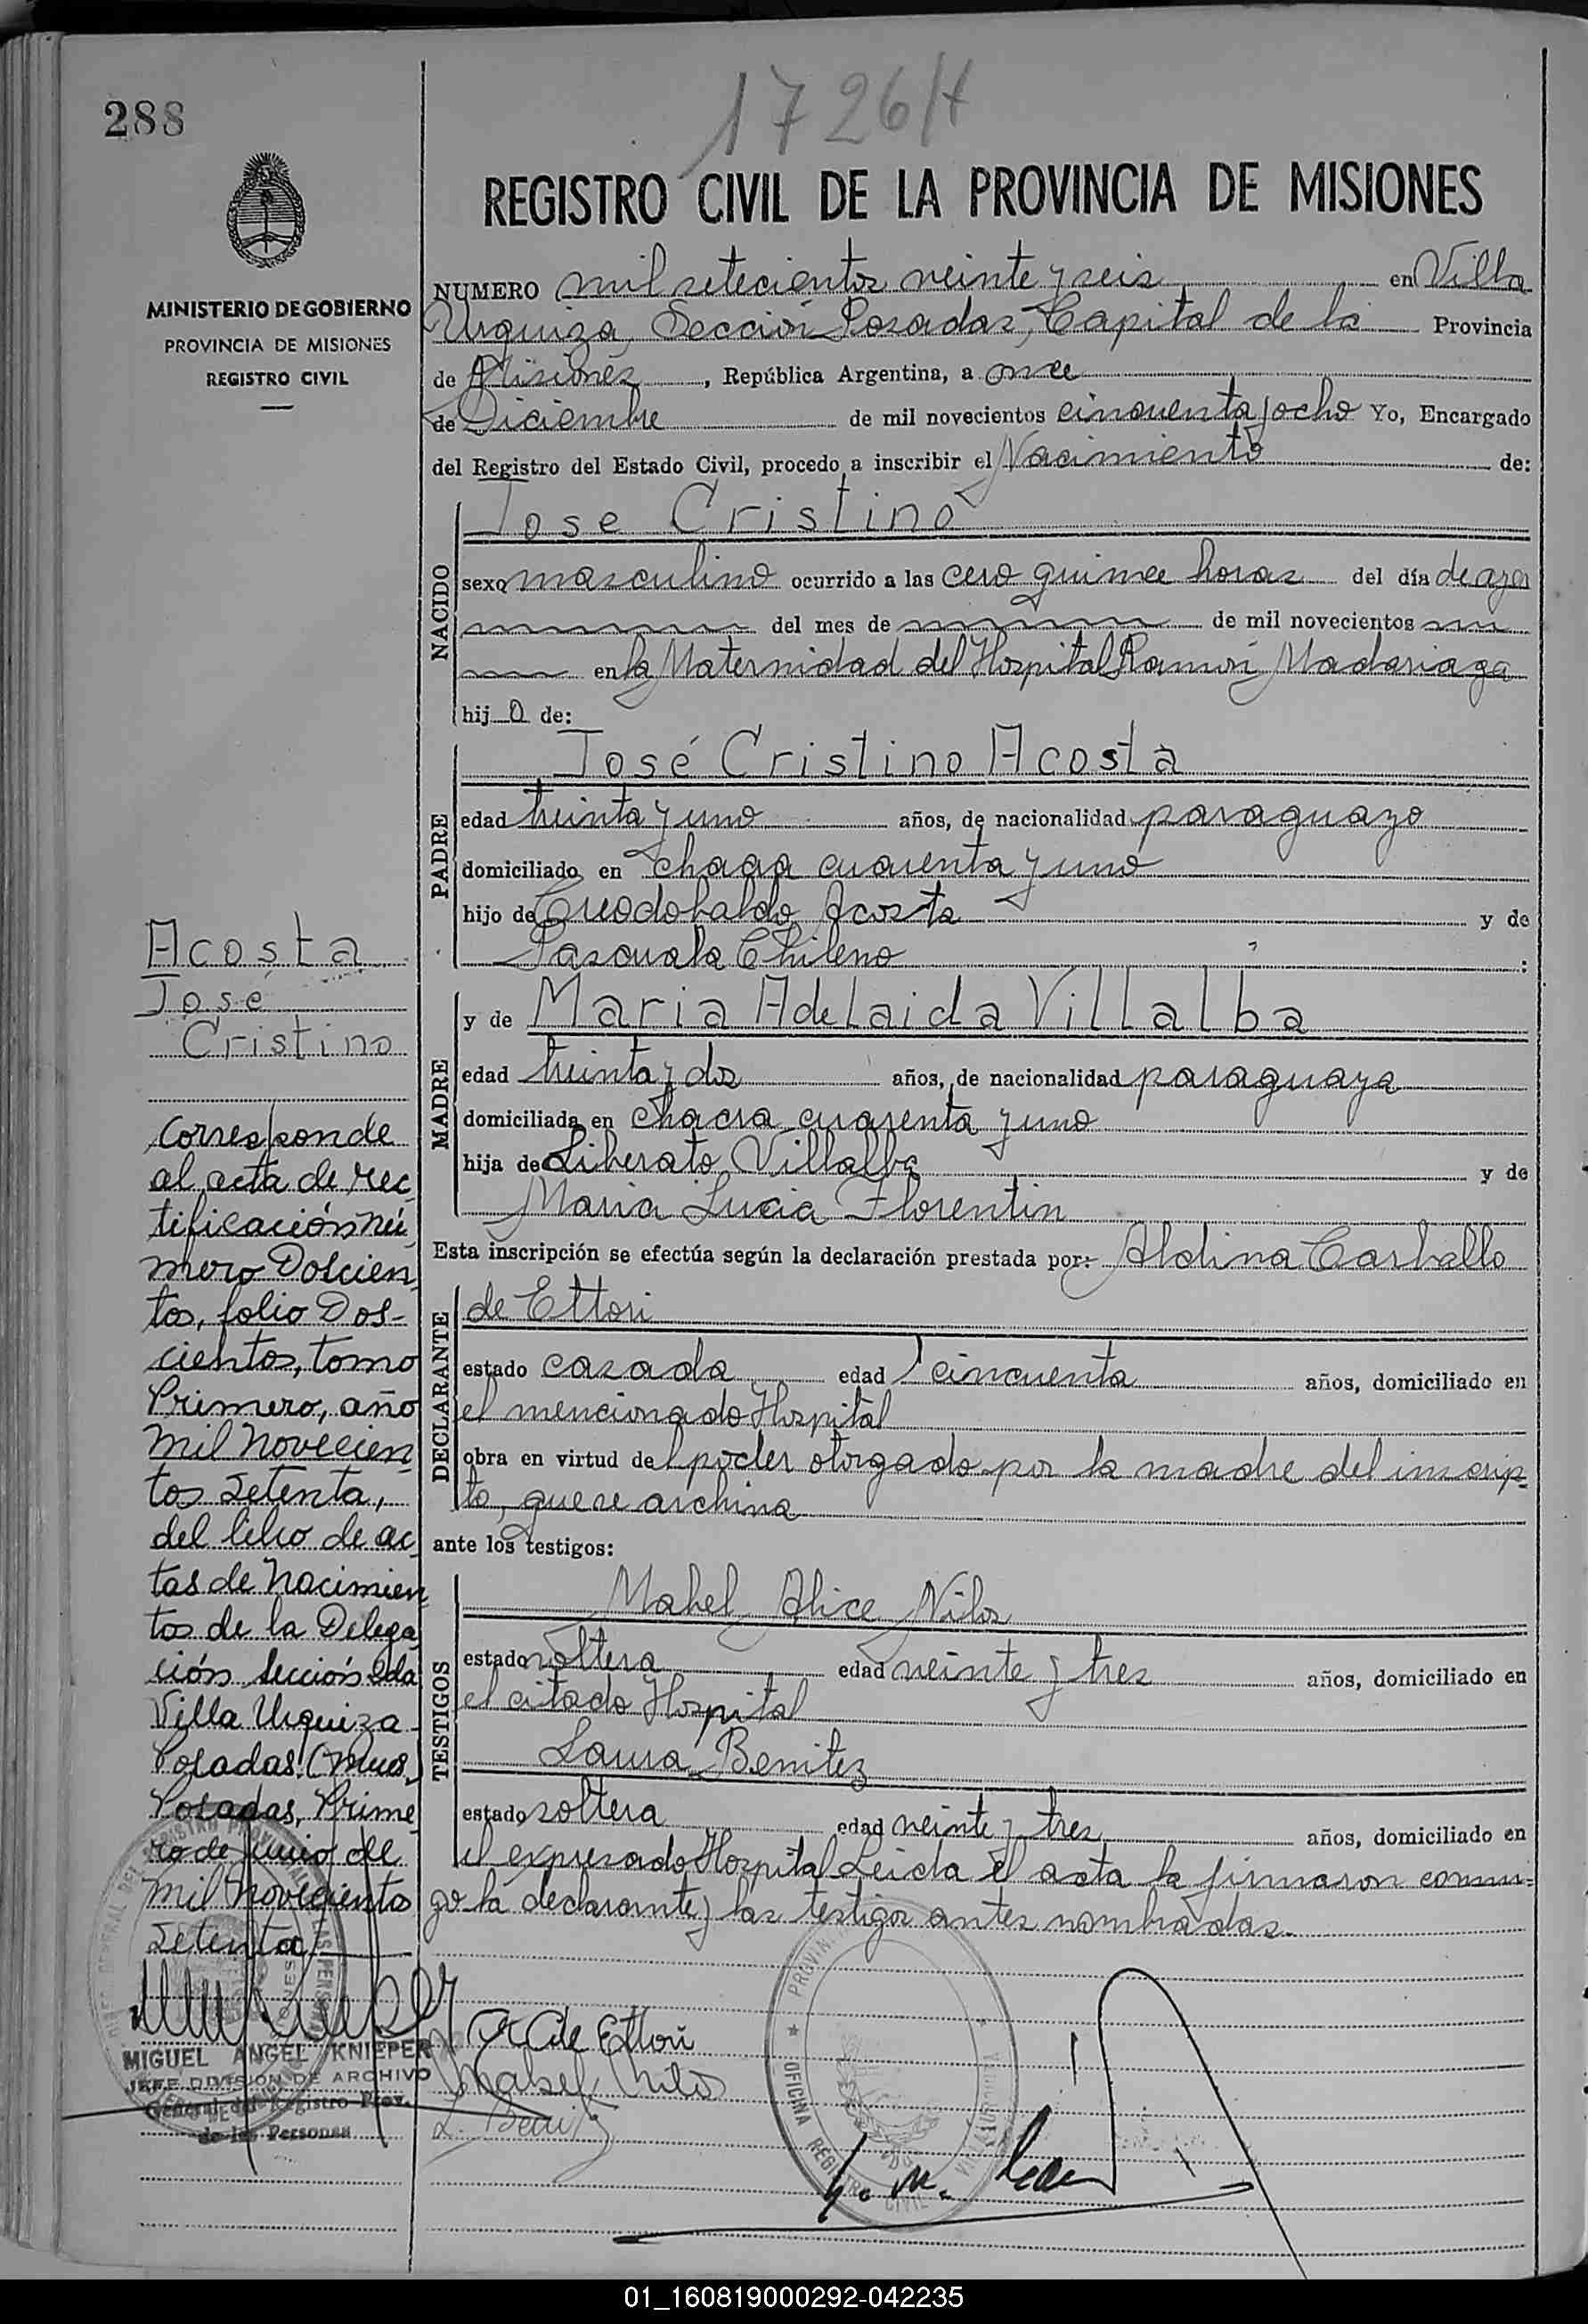 288
1726/H
REGISTRO CIVIL DE LA PROVINCIA DE MISIONES
MINISTERIO DE GOBIERNO
PROVINCIA DE MISIONES
REGISTRO CIVIL
NUMERO mil setecientos veinte y seis en Villa
Urquiza, Sección Posadas, Capital de la Provincia
de Misiones, República Argentina, a once
de Diciembre de mil novecientos cincuenta y ocho Yo, Encargado
del Registro del Estado Civil, procedo a inscribir el Nacimiento de:
NACIDO
Jose Cristino
sexo masculino ocurrido a las cero quince horas del día de ayer
del mes de de mil novecientos
en la Maternidad del Hospital Ramón Madariaga
hij o de:
PADRE
José Cristino Acosta
edad treinta y uno años, de nacionalidad paraguayo
domiciliado en chacra cuarenta y uno
hijo de Acosta y de
Pascuala Chileno :
MADRE
y de Maria Adelaida Villalba
edad treinta y dos años, de nacionalidad paraguaya
domiciliada en chacra cuarenta y uno
hija de Liberato Villalba y de
Maria Lucia Florentin
Esta inscripción se efectúa según la declaración prestada por: Aldina Carballo
DECLARANTE
de Ettori
estado casada edad cincuenta años, domiciliado en
el mencionado Hospital
obra en virtud del poder otorgado por la madre del inscrip-
to, que se archiva
ante los testigos:
TESTIGOS
Mabel Alice Nilos
estado soltera edad veinte y tres años, domiciliado en
el citado Hospital
Laura Benitez
estado soltera edad veinte y tres años, domiciliado en
el expresado Hospital Leida el acta la firmaron conmi-
go la declarante y las testigos antes nombradas.
Acosta
José
Cristino
Corresponde
al acta de rec
tificación nú
mero Doscien
tos, folio Dos-
cientos, tomo
Primero, año
mil novecien
tos setenta,
del libro de ac
tas de Nacimien
tos de la Delega
ción Sección 2da
Villa Urquiza
Posadas (Mnes.)
Posadas, Prime
ro de Junio de
mil novecientos
setenta
MIGUEL ANGEL KNIEPER
JEFE DIVISION DE ARCHIVO
General del Registro Prov.
de las Personas
C. de Ettori
Mabel Nilos
L. Benitez
OFICINA REGISTRO CIVIL
01_160819000292-042235